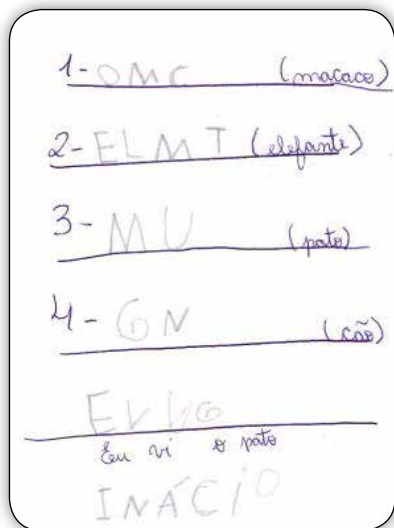 1- OMC (macaco)
2- ELMT (elefante)
3- MU (pato)
4- GN (cão)
EVVO
Eu vi o pato
INÁCIO